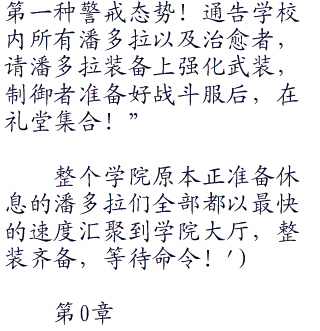 第一种警戒态势！通告学校
内所有潘多拉以及治愈者，
请潘多拉装备上强化武装，
制御者准备好战斗服后，在
礼堂集合！”
整个学院原本正准备休
息的潘多拉们全部都以最快
的速度汇聚到学院大厅，整
装齐备，等待命令！′）
第0章